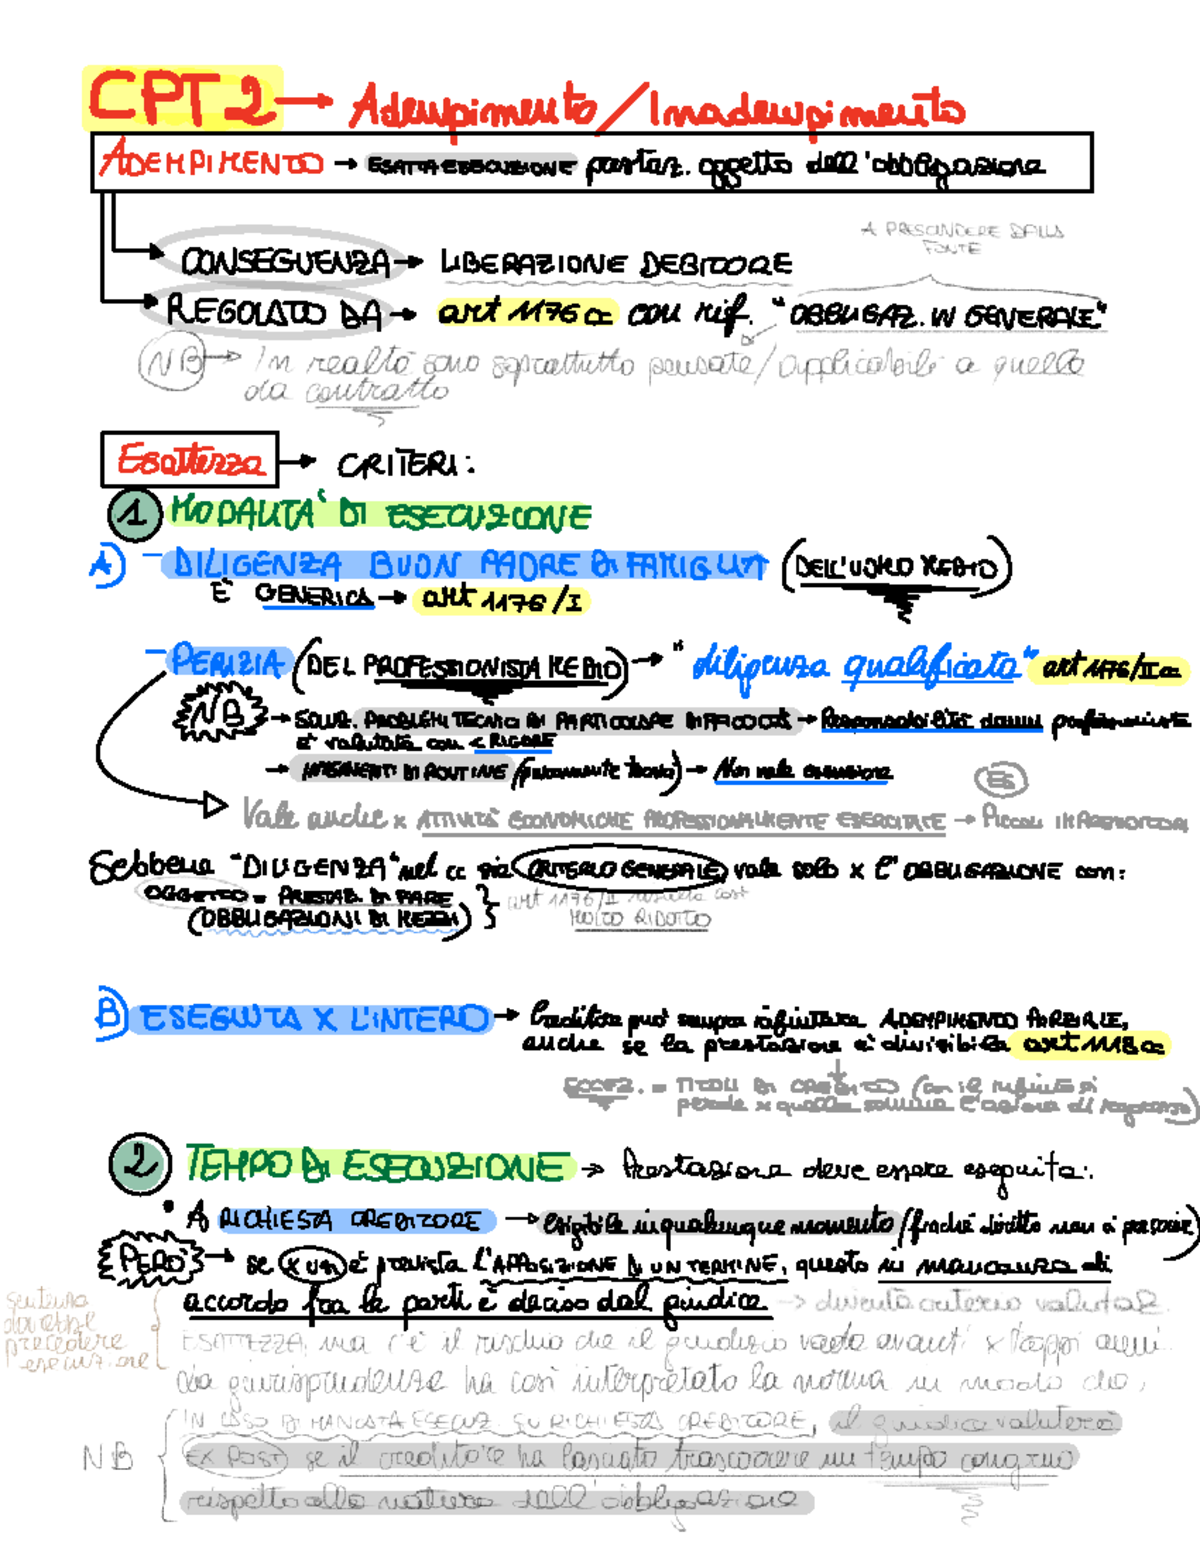 CPT 2 → Adempimento/Inadempimento
ADEMPIMENTO → ESATTA ESECUZIONE prestaz. oggetto dell'obbligazione
A PRESCINDERE DALLA
FONTE
CONSEGUENZA → LIBERAZIONE DEBITORE
REGOLATO DA → art 1176 cc con rif. "OBBLIGAZ. IN GENERALE"
NB → In realtà sono soprattutto pensate/applicabili a quelle
da contratto
Esattezza → CRITERI:
1 MODALITA' DI ESECUZIONE
A) - DILIGENZA BUON PADRE DI FAMIGLIA (DELL'UOMO MEDIO)
E' GENERICA → art 1176/I
- PERIZIA (DEL PROFESSIONISTA MEDIO) → "diligenza qualificata" art 1176/II cc
NB → SOLUZ. PROBLEMI TECNICI DI PARTICOLARE DIFFICOLTÀ → Responsabilità danni professionista
è valutata con < RIGORE
→ INTERVENTI DI ROUTINE → Non vale esenzione
ES
Vale anche x ATTIVITÀ ECONOMICHE PROFESSIONALMENTE ESERCITATE → PICCOLI IMPRENDITORI
Sebbene "DILIGENZA" nel cc sia CRITERIO GENERALE, vale solo x L'OBBLIGAZIONE con:
OGGETTO = PRESTAZ. DI FARE
(OBBLIGAZIONI DI MEZZI) } art 1176/II risulta così
MOLTO RIDOTTO
B) ESEGUITA X L'INTERO → Creditore può sempre rifiutare ADEMPIMENTO PARZIALE,
anche se la prestazione è divisibile art 1181 cc
ECCEZ. = TITOLI DI CREDITO (con il rifiuto si
perde x quella somma l'azione di regresso)
2 TEMPO DI ESECUZIONE → Prestazione deve essere eseguita:
• A RICHIESTA CREDITORE → esigibile in qualunque momento (finché diritto non si prescrive)
PERO' → se x uso è prevista L'APPOSIZIONE DI UN TERMINE, questo in mancanza di
accordo fra le parti è deciso dal giudice → diventa criterio valutaz.
sentenza
dovrebbe
precedere
esecuzione
ESATTEZZA, ma c'è il rischio che il giudizio vada avanti x troppi anni.
La giurisprudenza ha così interpretato la norma in modo che,
NB { IN CASO DI MANCATA ESECUZ. SU RICHIESTA CREDITORE, il giudice valuterà
EX POST se il creditore ha lasciato trascorrere un tempo congruo
rispetto alla natura dell'obbligazione